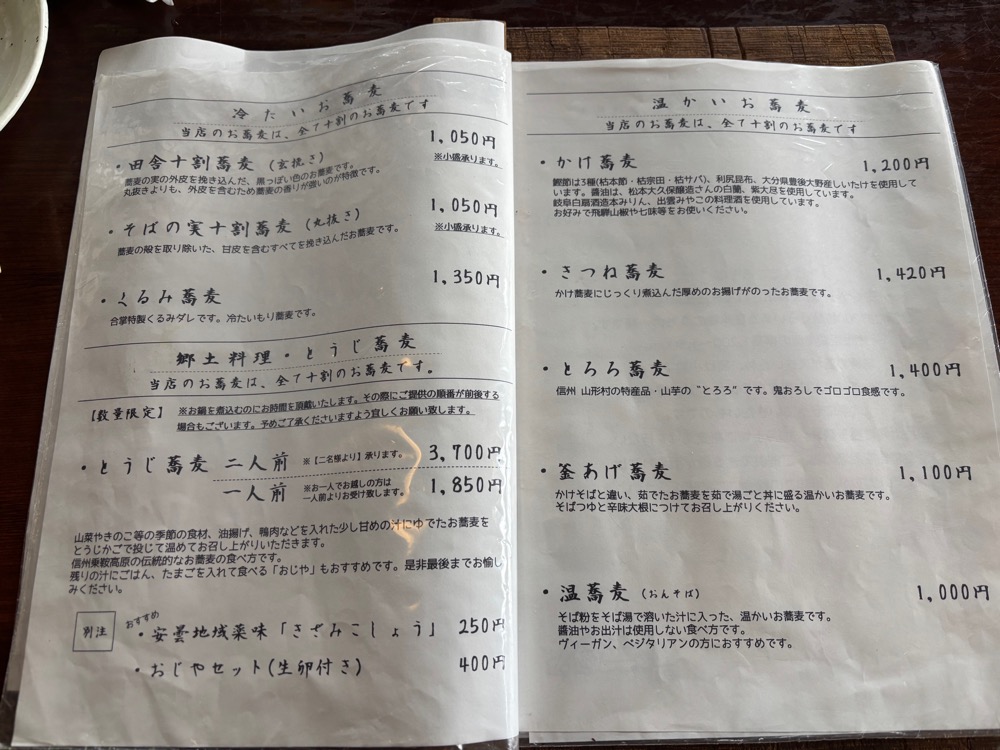 冷たいお蕎麦
当店のお蕎麦は、全て十割のお蕎麦です
・田舎十割蕎麦（玄挽き） 1,050円
※小盛承ります。
蕎麦の実の外皮を挽き込んだ、黒っぽい色のお蕎麦です。
丸抜きよりも、外皮を含むため蕎麦の香りが強いのが特徴です。
・そばの実十割蕎麦（丸抜き） 1,050円
※小盛承ります。
蕎麦の殻を取り除いた、甘皮を含むすべてを挽き込んだお蕎麦です。
・くるみ蕎麦 1,350円
合掌特製くるみダレです。冷たいもり蕎麦です。
郷土料理・とうじ蕎麦
当店のお蕎麦は、全て十割のお蕎麦です。
【数量限定】 ※お鍋を煮込むのにお時間を頂戴いたします。その際にご提供の順番が前後する
場合もございます。予めご了承くださいますよう宜しくお願い致します。
・とうじ蕎麦 二人前 ※【二名様より】承ります。 3,700円
一人前 ※お一人でお越しの方は
一人前よりお受け致します。 1,850円
山菜やきのこ等の季節の食材、油揚げ、鴨肉などを入れた少し甘めの汁にゆでたお蕎麦を
とうじかごで投じて温めてお召し上がりいただきます。
信州乗鞍高原の伝統的なお蕎麦の食べ方です。
残りの汁にごはん、たまごを入れて食べる「おじや」もおすすめです。是非最後までお愉し
みください。
別注 おすすめ
・安曇地域薬味「きざみこしょう」 250円
・おじやセット(生卵付き) 400円
温かいお蕎麦
当店のお蕎麦は、全て十割のお蕎麦です
・かけ蕎麦 1,200円
鰹節は3種(枯本節・枯宗田・枯サバ)、利尻昆布、大分県豊後大野産しいたけを使用して
います。醤油は、松本大久保醸造さんの白蘭、紫大尽を使用しています。
岐阜白扇酒造本みりん、出雲みやこの料理酒を使用しています。
お好みで飛騨山椒や七味等をお使いください。
・きつね蕎麦 1,420円
かけ蕎麦にじっくり煮込んだ厚めのお揚げがのったお蕎麦です。
・とろろ蕎麦 1,400円
信州 山形村の特産品・山芋の“とろろ”です。鬼おろしでゴロゴロ食感です。
・釜あげ蕎麦 1,100円
かけそばと違い、茹でたお蕎麦を茹で湯ごと丼に盛る温かいお蕎麦です。
そばつゆと辛味大根につけてお召し上がりください。
・温蕎麦（おんそば） 1,000円
そば粉をそば湯で溶いた汁に入った、温かいお蕎麦です。
醤油やお出汁は使用しない食べ方です。
ヴィーガン、ベジタリアンの方におすすめです。